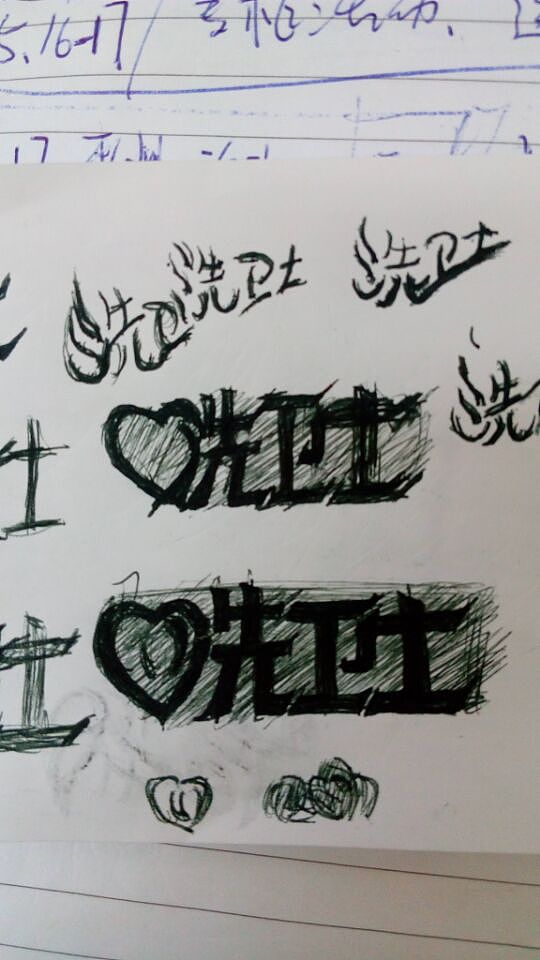 5.16-17 / 专柜活动.
洗卫
洗卫士
洗卫士
洗
士
洗卫士
士
洗卫士